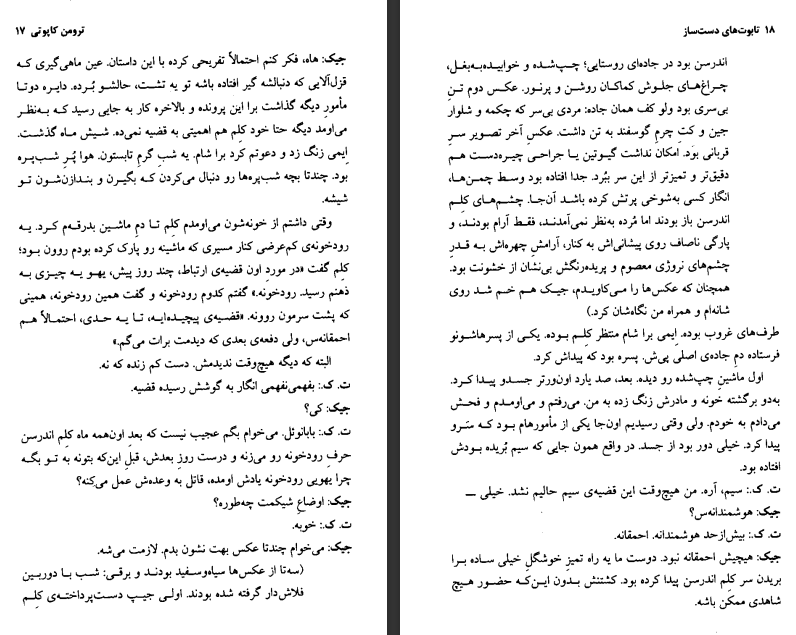 ترومن کاپوتی ۱۷
جیک: هاه، فکر کنم احتمالاً تفریحی کرده با این داستان. عین ماهی‌گیری که
قزل‌آلایی که دنبالشه گیر افتاده باشه تو یه تشت، حالشو بُرده. دایره دوتا
مأمور دیگه گذاشت برا این پرونده و بالاخره کار به جایی رسید که به‌نظر
می‌اومد دیگه حتا خود کلِم هم اهمیتی به قضیه نمی‌ده. شیش ماه گذشت.
اِیمی زنگ زد و دعوتم کرد برا شام. یه شبِ گرمِ تابستون. هوا پُرِ شب‌پره
بود. چندتا بچه شب‌پره‌ها رو دنبال می‌کردن که بگیرن و بندازن‌شون تو
شیشه.
وقتی داشتم از خونه‌شون می‌اومدم کلِم تا دمِ ماشین بدرقه‌م کرد. یه
رودخونه‌ی کم‌عرضی کنار مسیری که ماشینه رو پارک کرده بودم روون بود؛
کلِم گفت «در موردِ اون قضیه‌ی ارتباط، چند روز پیش، یهو یه چیزی به
ذهنم رسید. رودخونه.» گفتم کدوم رودخونه و گفت همین رودخونه، همینی
که پشت سرمون روونه. «قضیه‌ی پیچیده‌ایه، تا یه حدی، احتمالاً هم
احمقانه‌س، ولی دفعه‌ی بعدی که دیدمت برات می‌گم.»
البته که دیگه هیچ‌وقت ندیدمش. دست کم زنده که نه.
ت. ک.: بفهمی‌نفهمی انگار به گوشش رسیده قضیه.
جیک: کی؟
ت. ک.: بابانوئل. می‌خوام بگم عجیب نیست که بعد اون‌همه ماه کلِم اندرسن
حرفِ رودخونه رو می‌زنه و درست روزِ بعدش، قبلِ این‌که بتونه به تو بگه
چرا یهویی رودخونه یادش اومده، قاتل به وعده‌ش عمل می‌کنه؟
جیک: اوضاعِ شیکمت چه‌طوره؟
ت. ک.: خوبه.
جیک: می‌خوام چندتا عکس بهت نشون بدم. لازمت می‌شه.
(سه‌تا از عکس‌ها سیاه‌وسفید بودند و برقی: شب با دوربین
فلاش‌دار گرفته شده بودند. اولی جیپ دست‌پرداخته‌ی کلِم
۱۸ تابوت‌های دست‌ساز
اندرسن بود در جاده‌ای روستایی؛ چپ‌شده و خوابیده‌به‌بغل،
چراغ‌های جلوش کماکان روشن و پرنور. عکس دوم تنِ
بی‌سری بود ولو کف همان جاده: مردی بی‌سر که چکمه و شلوار
جین و کتِ چرمِ گوسفند به تن داشت. عکسِ آخر تصویر سرِ
قربانی بود. امکان نداشت گیوتین یا جراحی چیره‌دست هم
دقیق‌تر و تمیزتر از این سر ببُرد. جدا افتاده بود وسط چمن‌ها،
انگار کسی به‌شوخی پرتش کرده باشد آن‌جا. چشم‌های کلِم
اندرسن باز بودند اما مُرده به‌نظر نمی‌آمدند، فقط آرام بودند، و
پارگی ناصاف روی پیشانی‌اش به کنار، آرامشِ چهره‌اش به قدرِ
چشم‌های نروژی معصوم و پریده‌رنگش بی‌نشان از خشونت بود.
همچنان که عکس‌ها را می‌کاویدم، جیک هم خم شد روی
شانه‌ام و همراه من نگاه‌شان کرد.)
طرف‌های غروب بوده. اِیمی برا شام منتظر کلِم بوده. یکی از پسرهاشونو
فرستاده دمِ جاده‌ی اصلی پی‌ش. پسره بود که پیداش کرد.
اول ماشینِ چپ‌شده رو دیده. بعد، صد یارد اون‌ورتر جسدو پیدا کرد.
به‌دو برگشته خونه و مادرش زنگ زده به من. می‌رفتم و می‌اومدم و فحش
می‌دادم به خودم. ولی وقتی رسیدیم اون‌جا یکی از مأمورهام بود که سَرو
پیدا کرد. خیلی دور بود از جسد. در واقع همون جایی که سیم بُریده بودش
افتاده بود.
ت. ک.: سیم، آره. من هیچ‌وقت این قضیه‌ی سیم حالیم نشد. خیلی —
جیک: هوشمندانه‌س؟
ت. ک.: بیش‌ازحد هوشمندانه. احمقانه.
جیک: هیچیش احمقانه نبود. دوست ما یه راه تمیزِ خوشگلِ خیلی ساده برا
بریدن سر کلِم اندرسن پیدا کرده بود. کشتنش بدون این‌که حضور هیچ
شاهدی ممکن باشه.